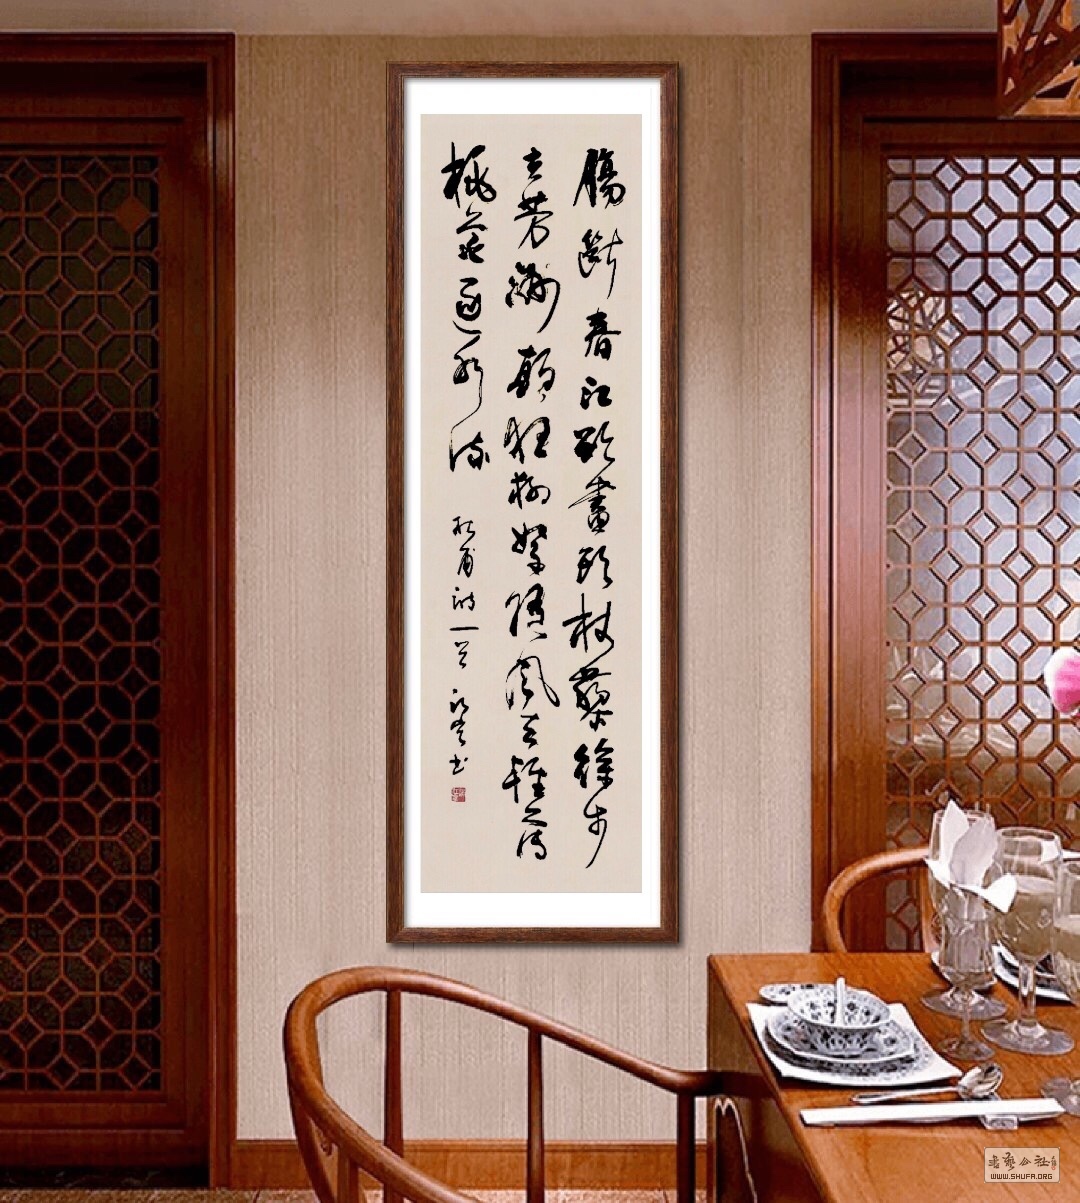 腸斷春江欲盡頭杖藜徐步
立芳洲顛狂柳絮隨風去輕薄
桃花逐水流 杜甫詩一首 书
書藝公社
WWW.SHUFA.ORG